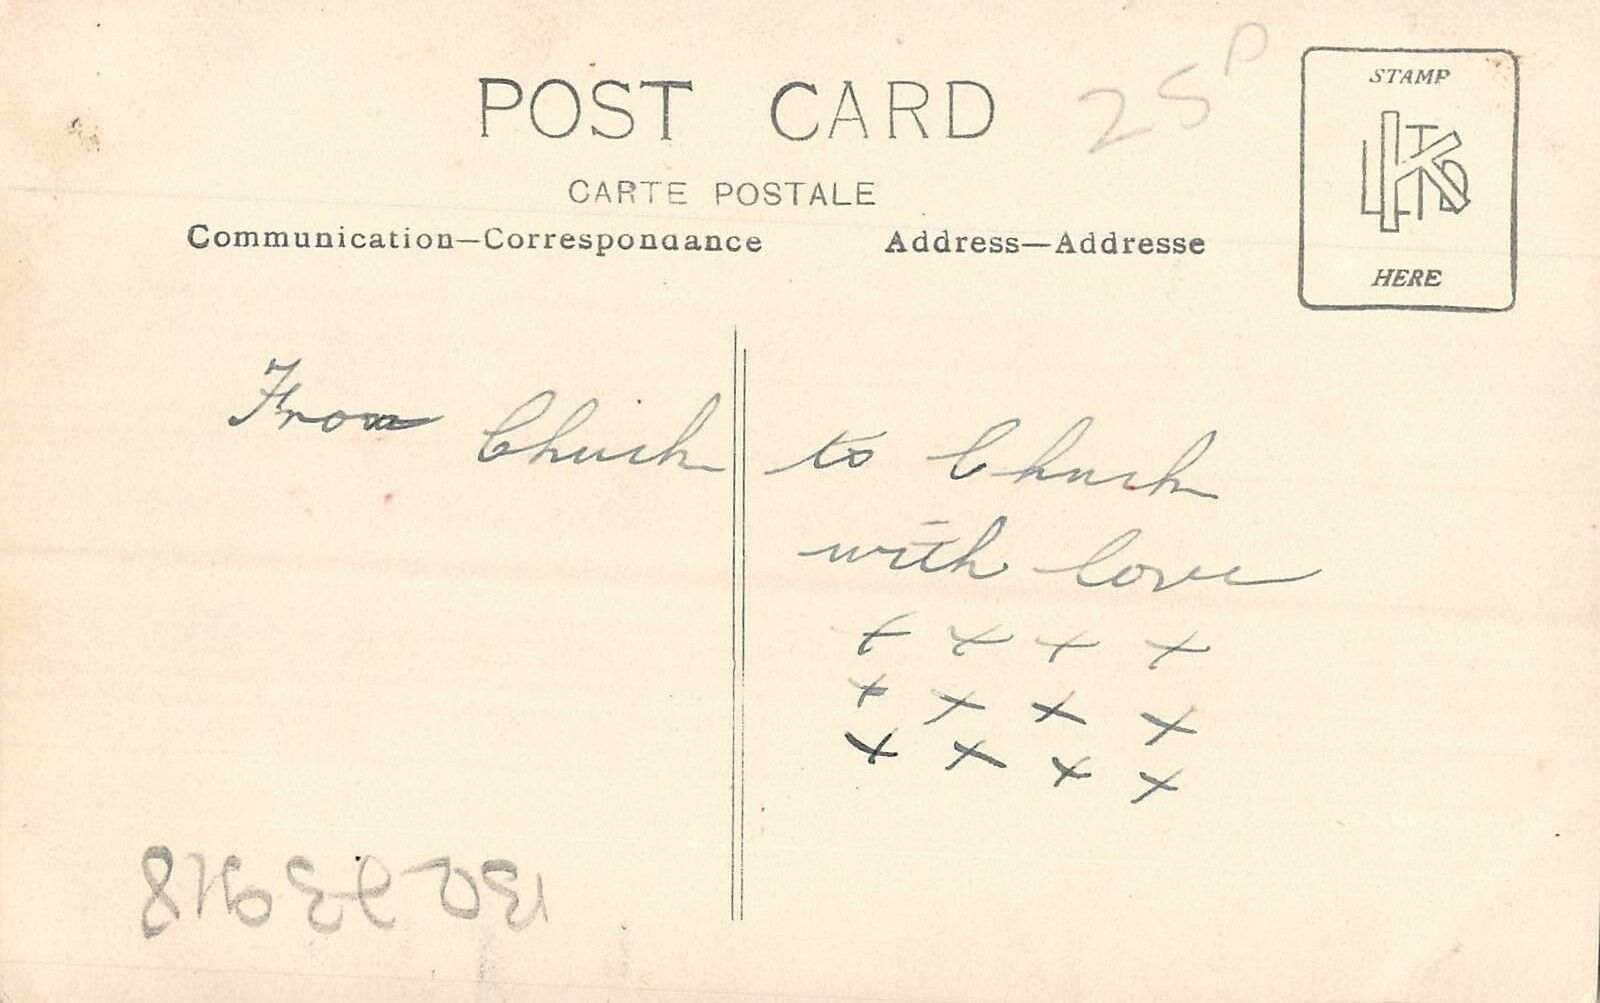 POST CARD
25 P
STAMP
K LTD
HERE
CARTE POSTALE
Communication—Correspondance
Address—Addresse
From Chuck to Chuck
with love
x x x x
x x x x
x x x x